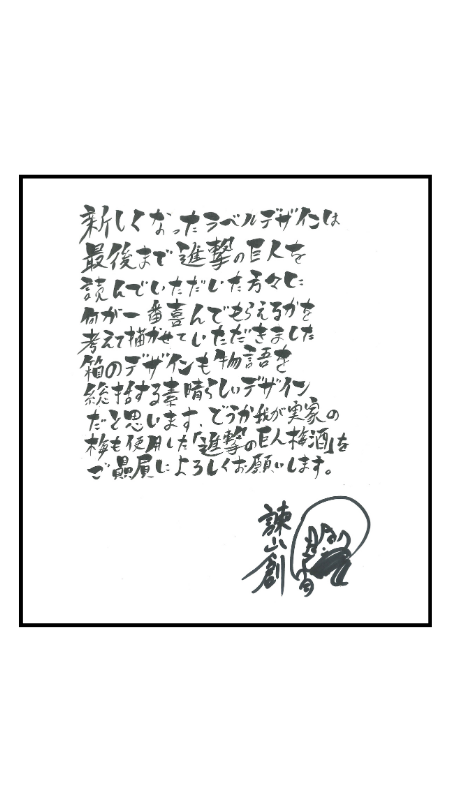 新しくなったラベルデザインは
最後まで進撃の巨人を
読んでいただいた方々に
何が一番喜んでもらえるかを
考えて描かせていただきました
箱のデザインも物語を
総括する素晴らしいデザイン
だと思います。どうか我が実家の
梅も使用した「進撃の巨人梅酒」を
ご贔屓によろしくお願いします。
諫山創